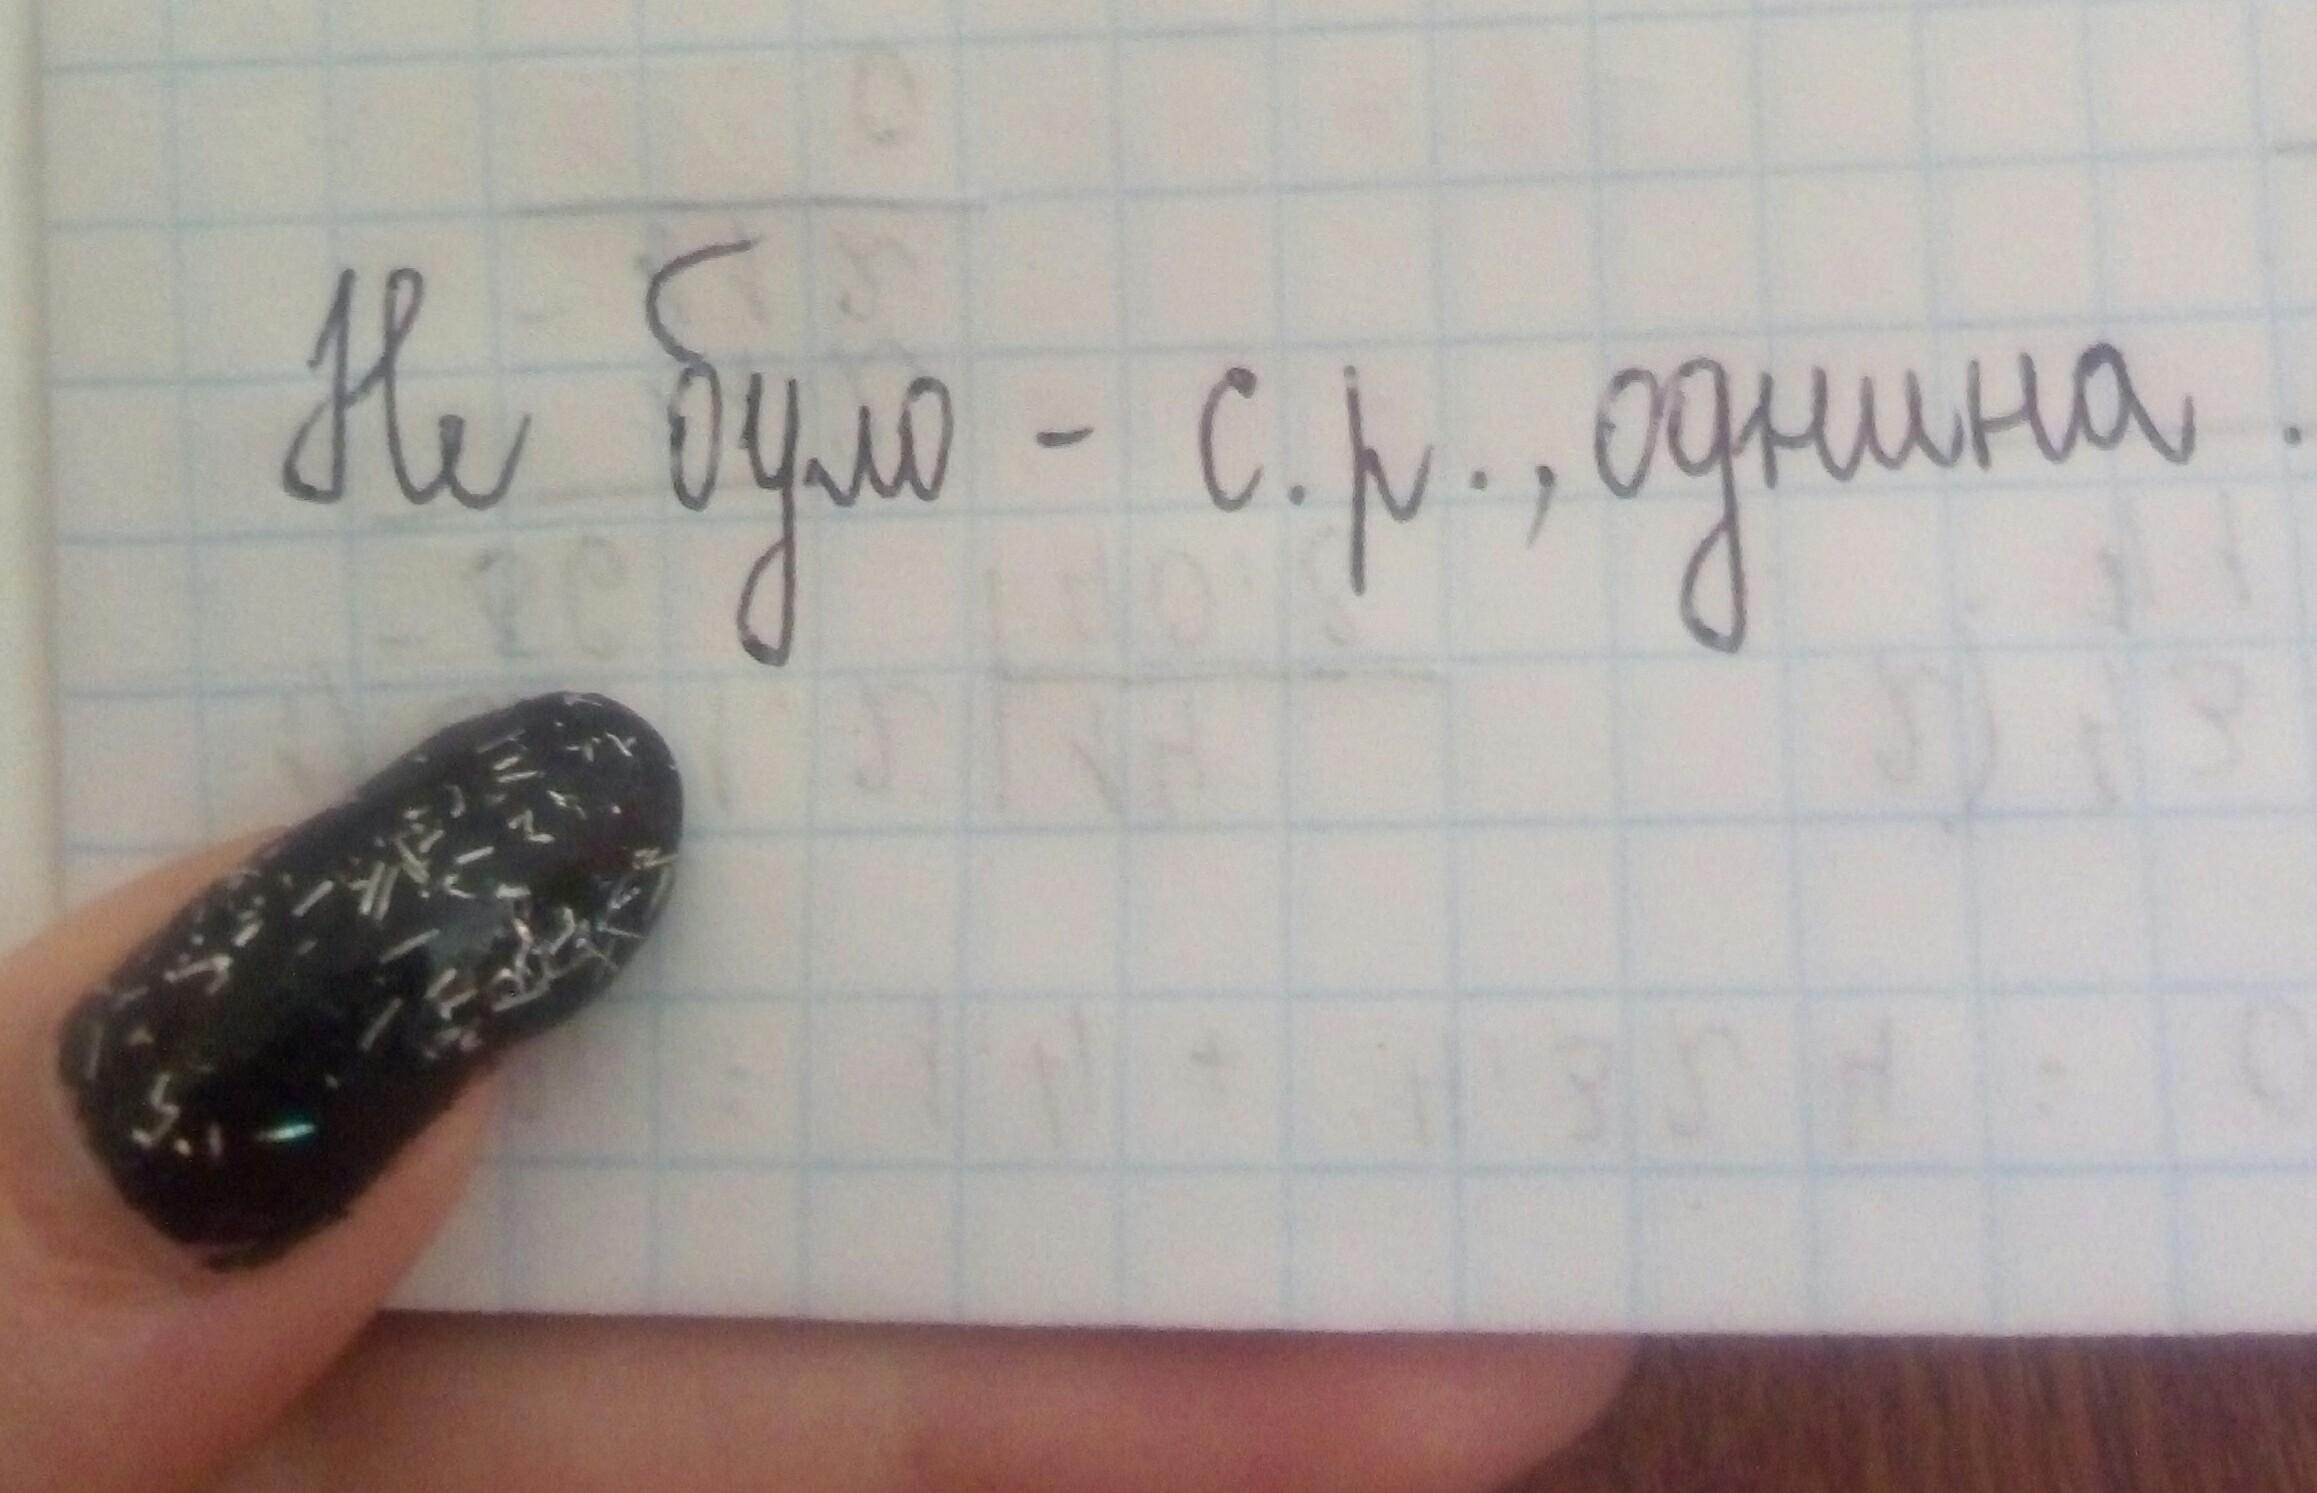 Не було - с.р., однина.